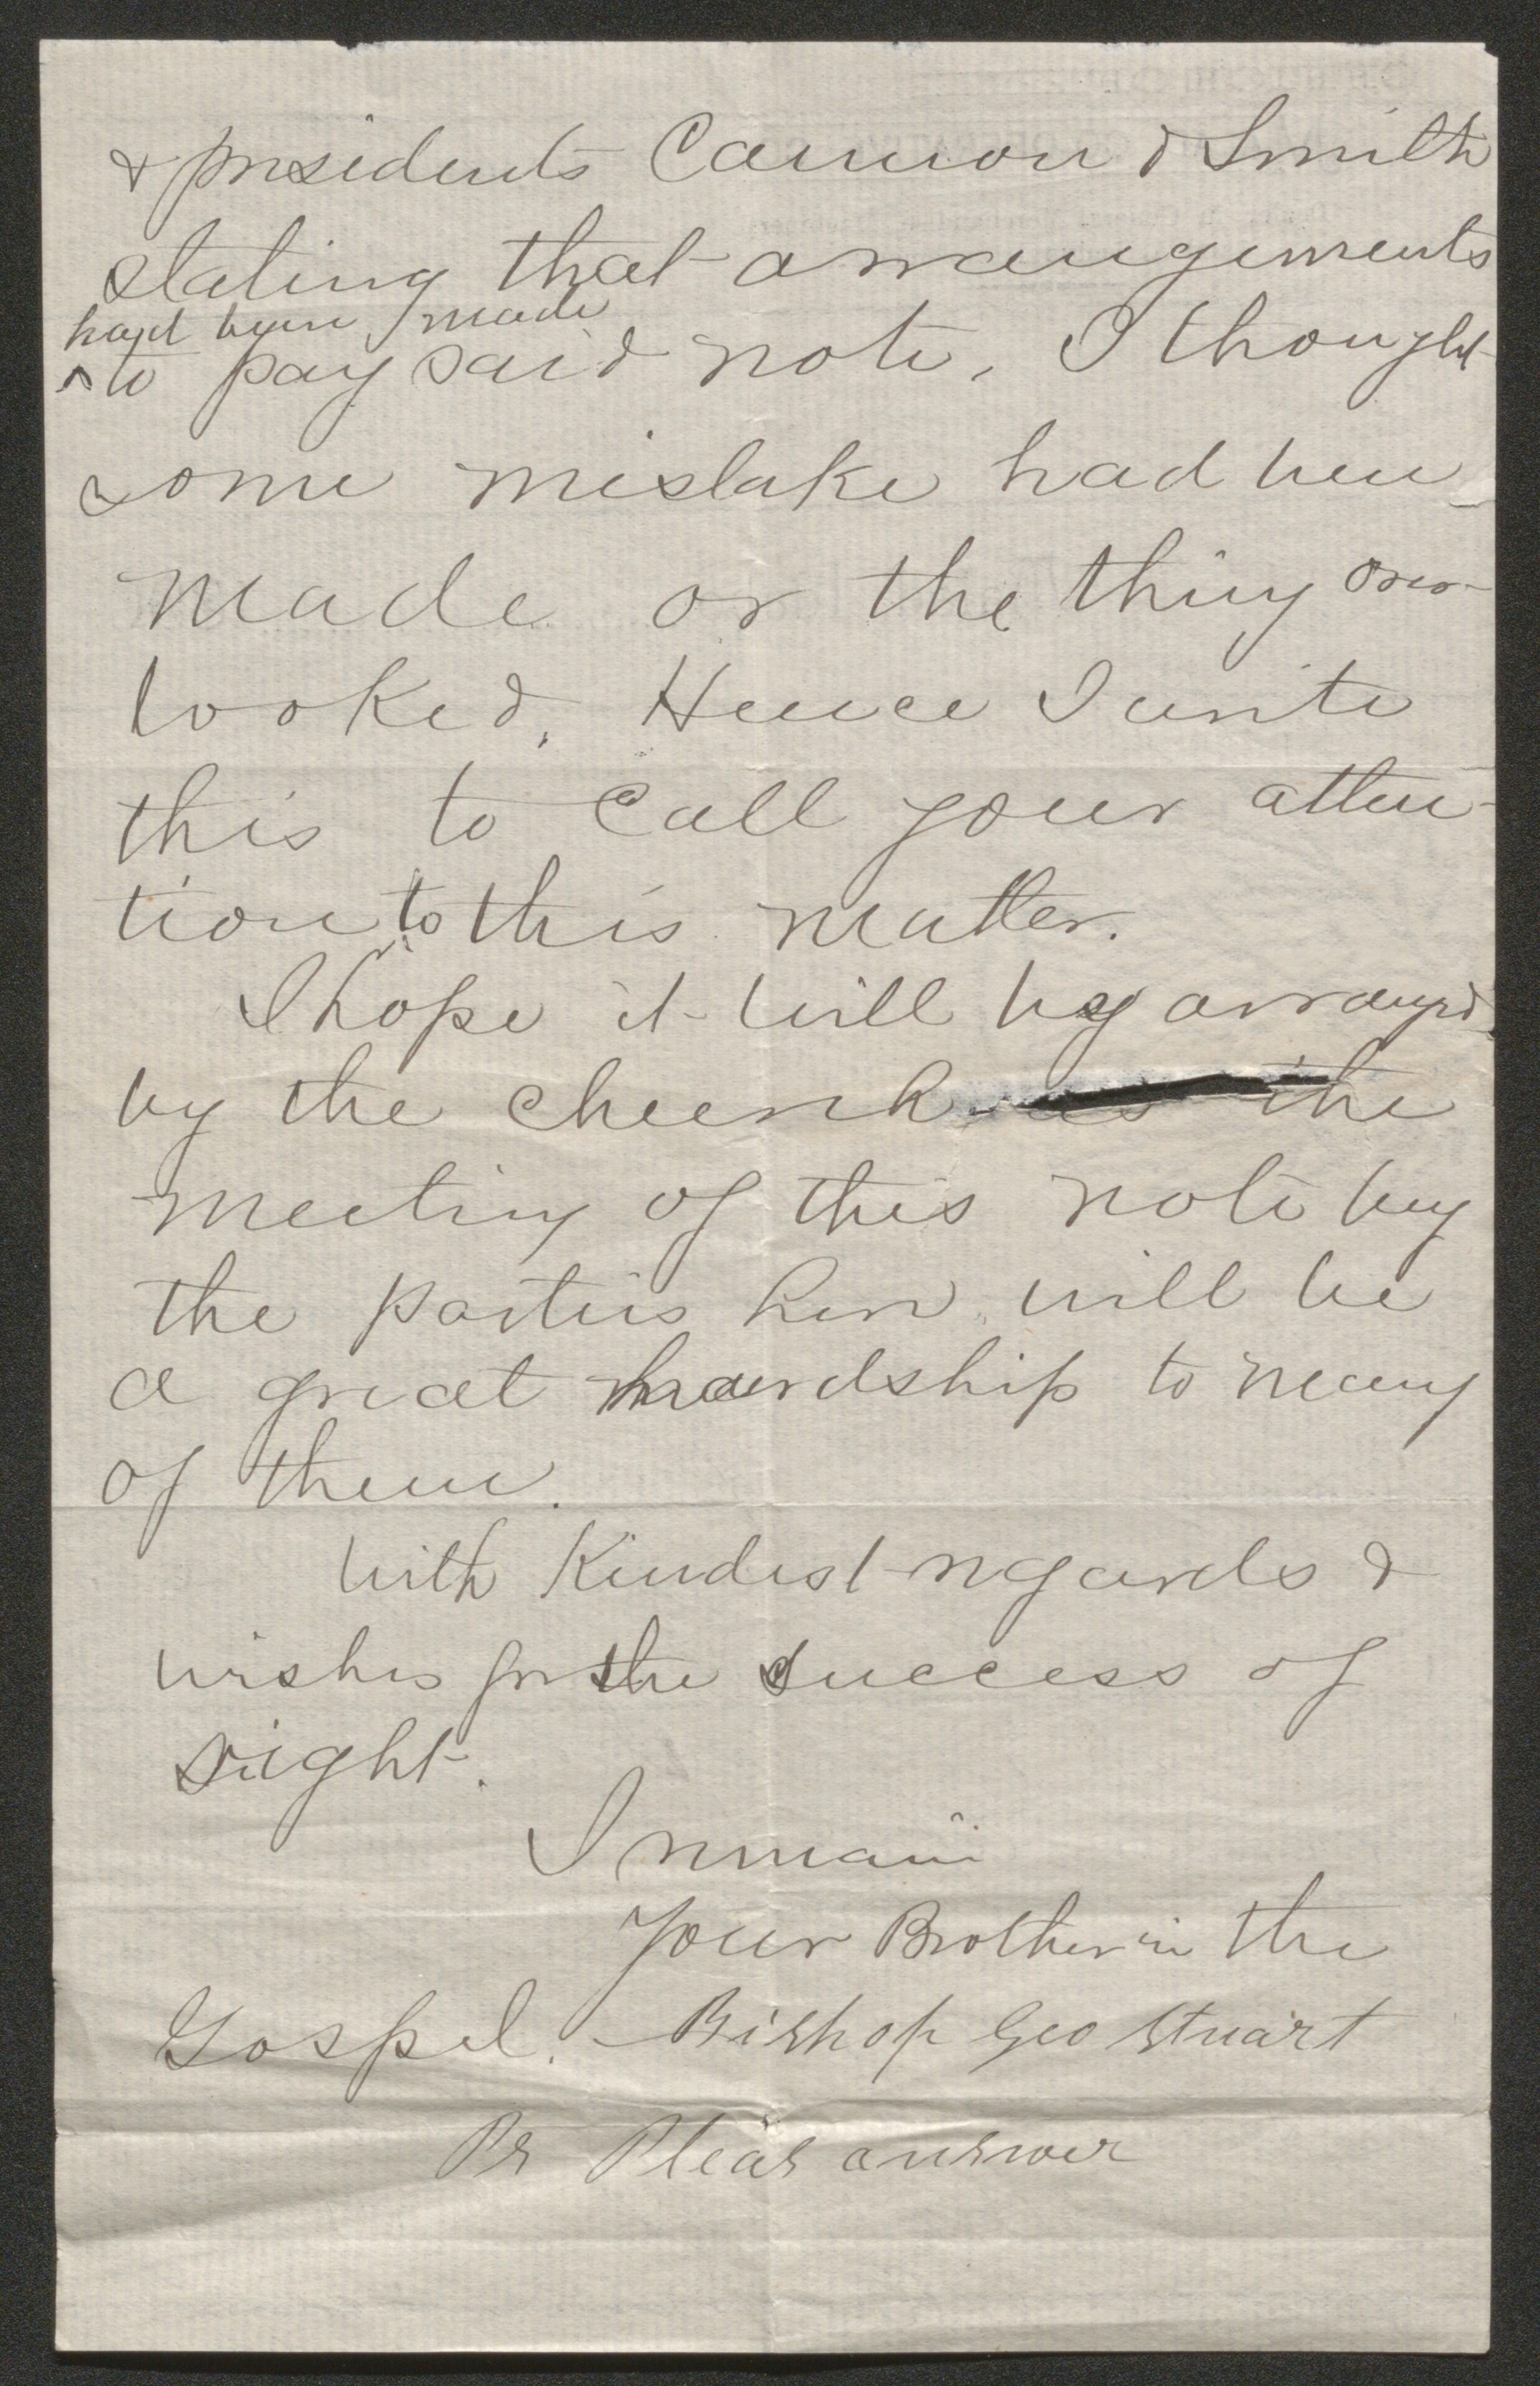 & presidents Cannon & Smith
stating that arrangements
had been made
^ to pay said note, I thought
some mistake had been
made or the thing over-
looked. Hence I write
this to call your atten-
tion to this matter.
I hope it will be arranged
by the cheerch as the
meeting of this note by
the parties here will be
a great hardship to many
of them.
With Kindest regards &
wishes for the success of
right.
I remain
Your Brother in the
Gospel. Bishop Geo Stuart
Ps Pleas answer